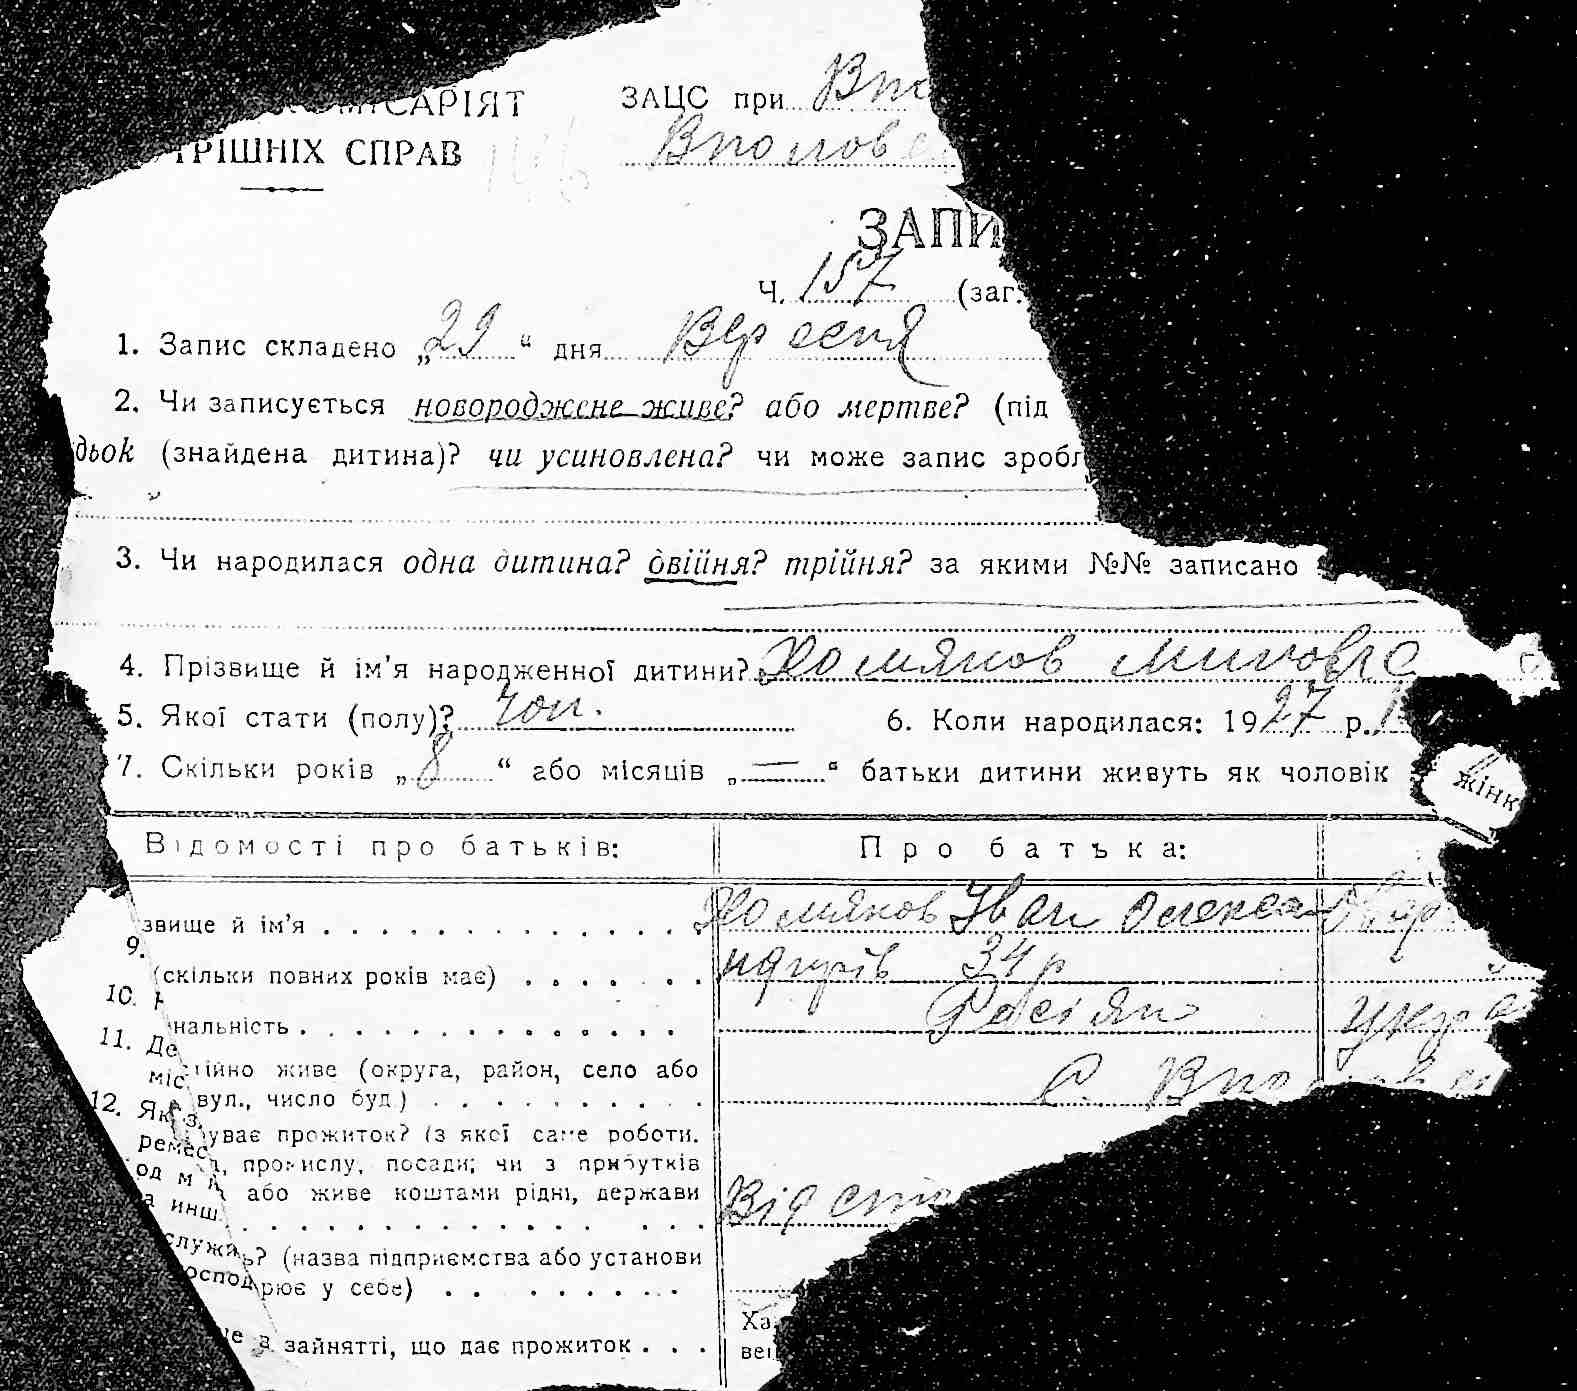 САРІЯТ ЗАЦС при
ТРІШНІХ СПРАВ
ЗАПИ
Ч. 157 (заг.
1. Запис складено „29“ дня Вересня
2. Чи записується новороджене живе? або мертве? (під
дьок (знайдена дитина)? чи усиновлена? чи може запис зробл
3. Чи народилася одна дитина? двійня? трійня? за якими №№ записано
4. Прізвище й ім'я народженної дитини? Хомяков
5. Якої стати (полу)? чол. 6. Коли народилася: 1927 р.
7. Скільки років „8“ або місяців „—“ батьки дитини живуть як чоловік жінк
Відомості про батьків: Про батька:
звище й ім'я Хомяков Іван Олекса-
9. (скільки повних років має) ндрів 34 р
10. Н нальність Росіян Укра
11. Де ійно живе (округа, район, село або
міс вул., число буд.) с.
12. Як з ує прожиток? (з якої саме роботи,
ремес , промислу, посади; чи з прибутків
од м або живе коштами рідні, держави
а инш. Від
служ ь? (назва підприємства або установи
оспод рює у себе)
е в зайнятті, що дає прожиток Ха
вец